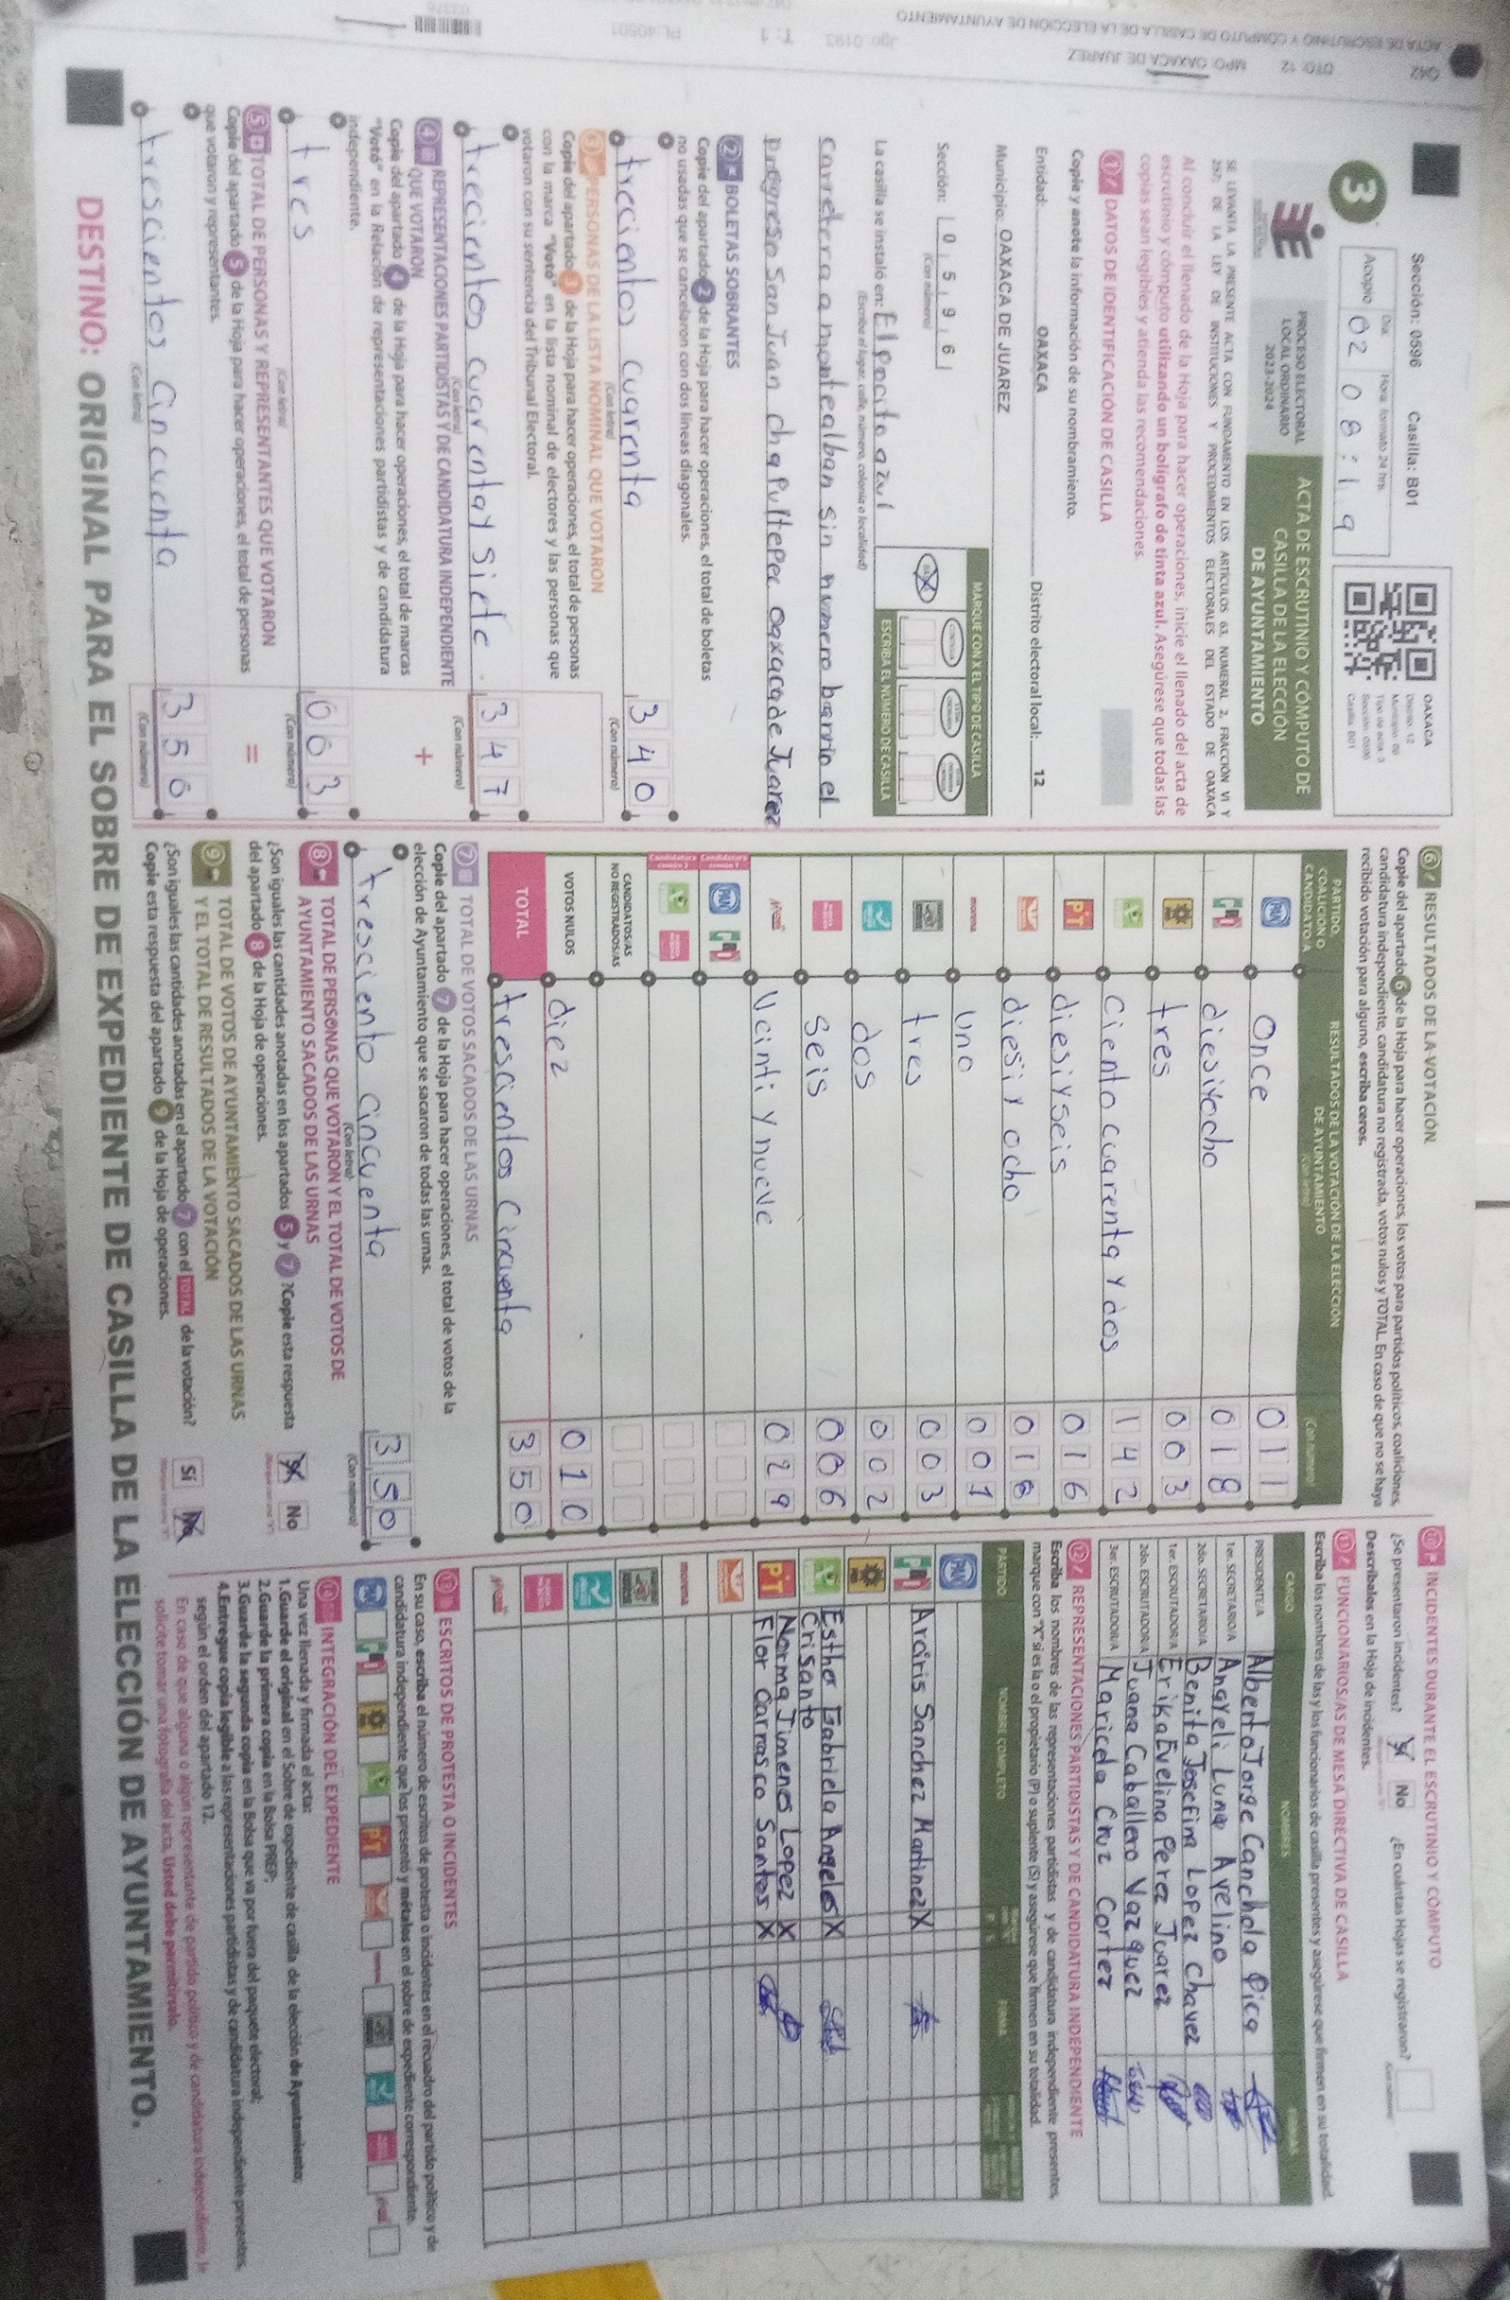 Sección: 0596 Casilla: B01
3
Acopio
Día
Hora: formato 24 hrs.
02 08:19
OAXACA
Distrito: 12
Casilla: B01
PROCESO ELECTORAL
LOCAL ORDINARIO
2023-2024
ACTA DE ESCRUTINIO Y CÓMPUTO DE
CASILLA DE LA ELECCIÓN
DE AYUNTAMIENTO
SE LEVANTA LA PRESENTE ACTA CON FUNDAMENTO EN LOS ARTÍCULOS 63, NUMERAL 2, FRACCIÓN VI Y
257; DE LA LEY DE INSTITUCIONES Y PROCEDIMIENTOS ELECTORALES DEL ESTADO DE OAXACA
Al concluir el llenado de la Hoja para hacer operaciones, inicie el llenado del acta de
escrutinio y cómputo utilizando un bolígrafo de tinta azul. Asegúrese que todas las
copias sean legibles y atienda las recomendaciones.
1 DATOS DE IDENTIFICACIÓN DE CASILLA
Copie y anote la información de su nombramiento.
Entidad: OAXACA Distrito electoral local: 12
Municipio: OAXACA DE JUAREZ
Sección: 0 5 9 6
(Con número)
MARQUE CON X EL TIPO DE CASILLA
ESCRIBA EL NÚMERO DE CASILLA
La casilla se instaló en: El pocito azul
(Escriba el lugar, calle, número, colonia o localidad)
carretera a montealban sin numero barrio el
progreso San Juan chapultepec oaxaca de Juarez
2 BOLETAS SOBRANTES
Copie del apartado 2 de la Hoja para hacer operaciones, el total de boletas
no usadas que se cancelaron con dos líneas diagonales.
trecientos cuarenta 3 4 0
(Con letra) (Con número)
3 PERSONAS DE LA LISTA NOMINAL QUE VOTARON
Copie del apartado 3 de la Hoja para hacer operaciones, el total de personas
con la marca "Votó" en la lista nominal de electores y las personas que
votaron con su sentencia del Tribunal Electoral.
trecientos cuarentay siete. 3 4 7
(Con letra) (Con número)
4 REPRESENTACIONES PARTIDISTAS Y DE CANDIDATURA INDEPENDIENTE
QUE VOTARON
+
Copie del apartado 4 de la Hoja para hacer operaciones, el total de marcas
"Votó" en la Relación de representaciones partidistas y de candidatura
independiente.
tres 0 0 3
(Con letra) (Con número)
5 TOTAL DE PERSONAS Y REPRESENTANTES QUE VOTARON
=
Copie del apartado 5 de la Hoja para hacer operaciones, el total de personas
que votaron y representantes.
trescientos cincuenta 3 5 0
(Con letra) (Con número)
6 RESULTADOS DE LA VOTACIÓN
Copie del apartado 6 de la Hoja para hacer operaciones, los votos para partidos políticos, coaliciones,
candidatura independiente, candidatura no registrada, votos nulos y TOTAL. En caso de que no se haya
recibido votación para alguno, escriba ceros.
PARTIDO,
COALICIÓN O
CANDIDATO/A
RESULTADOS DE LA VOTACIÓN DE LA ELECCIÓN
DE AYUNTAMIENTO
(Con letra) (Con número)
PAN Once 0 1 1
PRI diesiyocho 0 1 8
tres 0 0 3
ciento cuarenta y dos 1 4 2
PT diesiyseis 0 1 6
diesiy ocho 0 1 8
morena uno 0 0 1
tres 0 0 3
dos 0 0 2
seis 0 0 6
Veinti y nueve 0 2 9
Candidatura común 1
PAN PRI
Candidatura común 2
CANDIDATOS/AS
NO REGISTRADOS/AS
VOTOS NULOS diez 0 1 0
TOTAL trescientos Cincuenta 3 5 0
7 TOTAL DE VOTOS SACADOS DE LAS URNAS
Copie del apartado 7 de la Hoja para hacer operaciones, el total de votos de la
elección de Ayuntamiento que se sacaron de todas las urnas.
tresciento cincuenta 3 5 0
(Con letra) (Con número)
8 TOTAL DE PERSONAS QUE VOTARON Y EL TOTAL DE VOTOS DE
AYUNTAMIENTO SACADOS DE LAS URNAS
¿Son iguales las cantidades anotadas en los apartados 5 y 7 ?Copie esta respuesta
del apartado 8 de la Hoja de operaciones.
Sí No
9 TOTAL DE VOTOS DE AYUNTAMIENTO SACADOS DE LAS URNAS
Y EL TOTAL DE RESULTADOS DE LA VOTACIÓN
¿Son iguales las cantidades anotadas en el apartado 7 con el TOTAL de la votación?
Copie esta respuesta del apartado 9 de la Hoja de operaciones.
Sí No
10 INCIDENTES DURANTE EL ESCRUTINIO Y CÓMPUTO
¿Se presentaron incidentes? Sí No ¿En cuántas Hojas se registraron?
Descríbalos en la Hoja de incidentes.
11 FUNCIONARIOS/AS DE MESA DIRECTIVA DE CASILLA
Escriba los nombres de las y los funcionarios de casilla presentes y asegúrese que firmen en su totalidad.
CARGO NOMBRES FIRMAS
PRESIDENTE/A Alberto Jorge Canchola Pica
1er. SECRETARIO/A Anayeli Luna Avelino
2do. SECRETARIO/A Benita Josefina Lopez Chavez
1er. ESCRUTADOR/A Erika Evelina Perez Juarez
2do. ESCRUTADOR/A Juana Caballero Vazquez
3er. ESCRUTADOR/A Maricela Cruz Cortez
12 REPRESENTACIONES PARTIDISTAS Y DE CANDIDATURA INDEPENDIENTE
Escriba los nombres de las representaciones partidistas y de candidatura independiente presentes,
marque con "X" si es la o el propietario (P) o suplente (S) y asegúrese que firmen en su totalidad.
PARTIDO NOMBRE COMPLETO P S FIRMA
PAN
PRI Araris Sanchez Martinez X
Esther Gabriela Angeles X
Crisanto
PT Norma Jimenes Lopez X
Flor Carrasco Santos X
morena
13 ESCRITOS DE PROTESTA O INCIDENTES
En su caso, escriba el número de escritos de protesta o incidentes en el recuadro del partido político y de
candidatura independiente que los presentó y métalos en el sobre de expediente correspondiente.
PAN PRI PT
INTEGRACIÓN DEL EXPEDIENTE
Una vez llenada y firmada el acta:
1.Guarde el original en el Sobre de expediente de casilla de la elección de Ayuntamiento;
2.Guarde la primera copia en la Bolsa PREP;
3.Guarde la segunda copia en la Bolsa que va por fuera del paquete electoral;
4.Entregue copia legible a las representaciones partidistas y de candidatura independiente presentes,
según el orden del apartado 12.
En caso de que alguna o algún representante de partido político y de candidatura independiente, le
solicite tomar una fotografía del acta, Usted debe permitírselo.
DESTINO: ORIGINAL PARA EL SOBRE DE EXPEDIENTE DE CASILLA DE LA ELECCIÓN DE AYUNTAMIENTO.